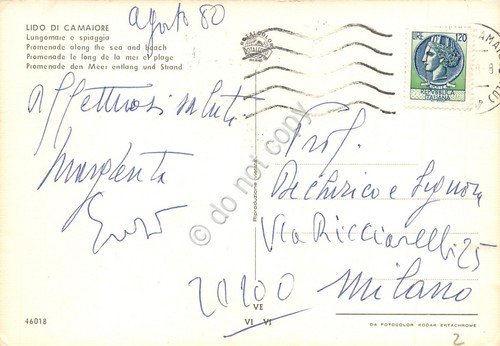 LIDO DI CAMAIORE
Lungomare e spiaggia
Promenade along the sea and beach
Promenade le long de la mer et plage
Promenade den Meer entlang und Strand
agosto 80
Affettuosi saluti
Margherita
Prof.
Bechirico e Signora
Via Ricciarelli 25
20100 Milano
LIRE 120
REPUBBLICA
ITALIANA
do not copy
46018
VE
VI VI
DA FOTOCOLOR KODAK EKTACHROME
2